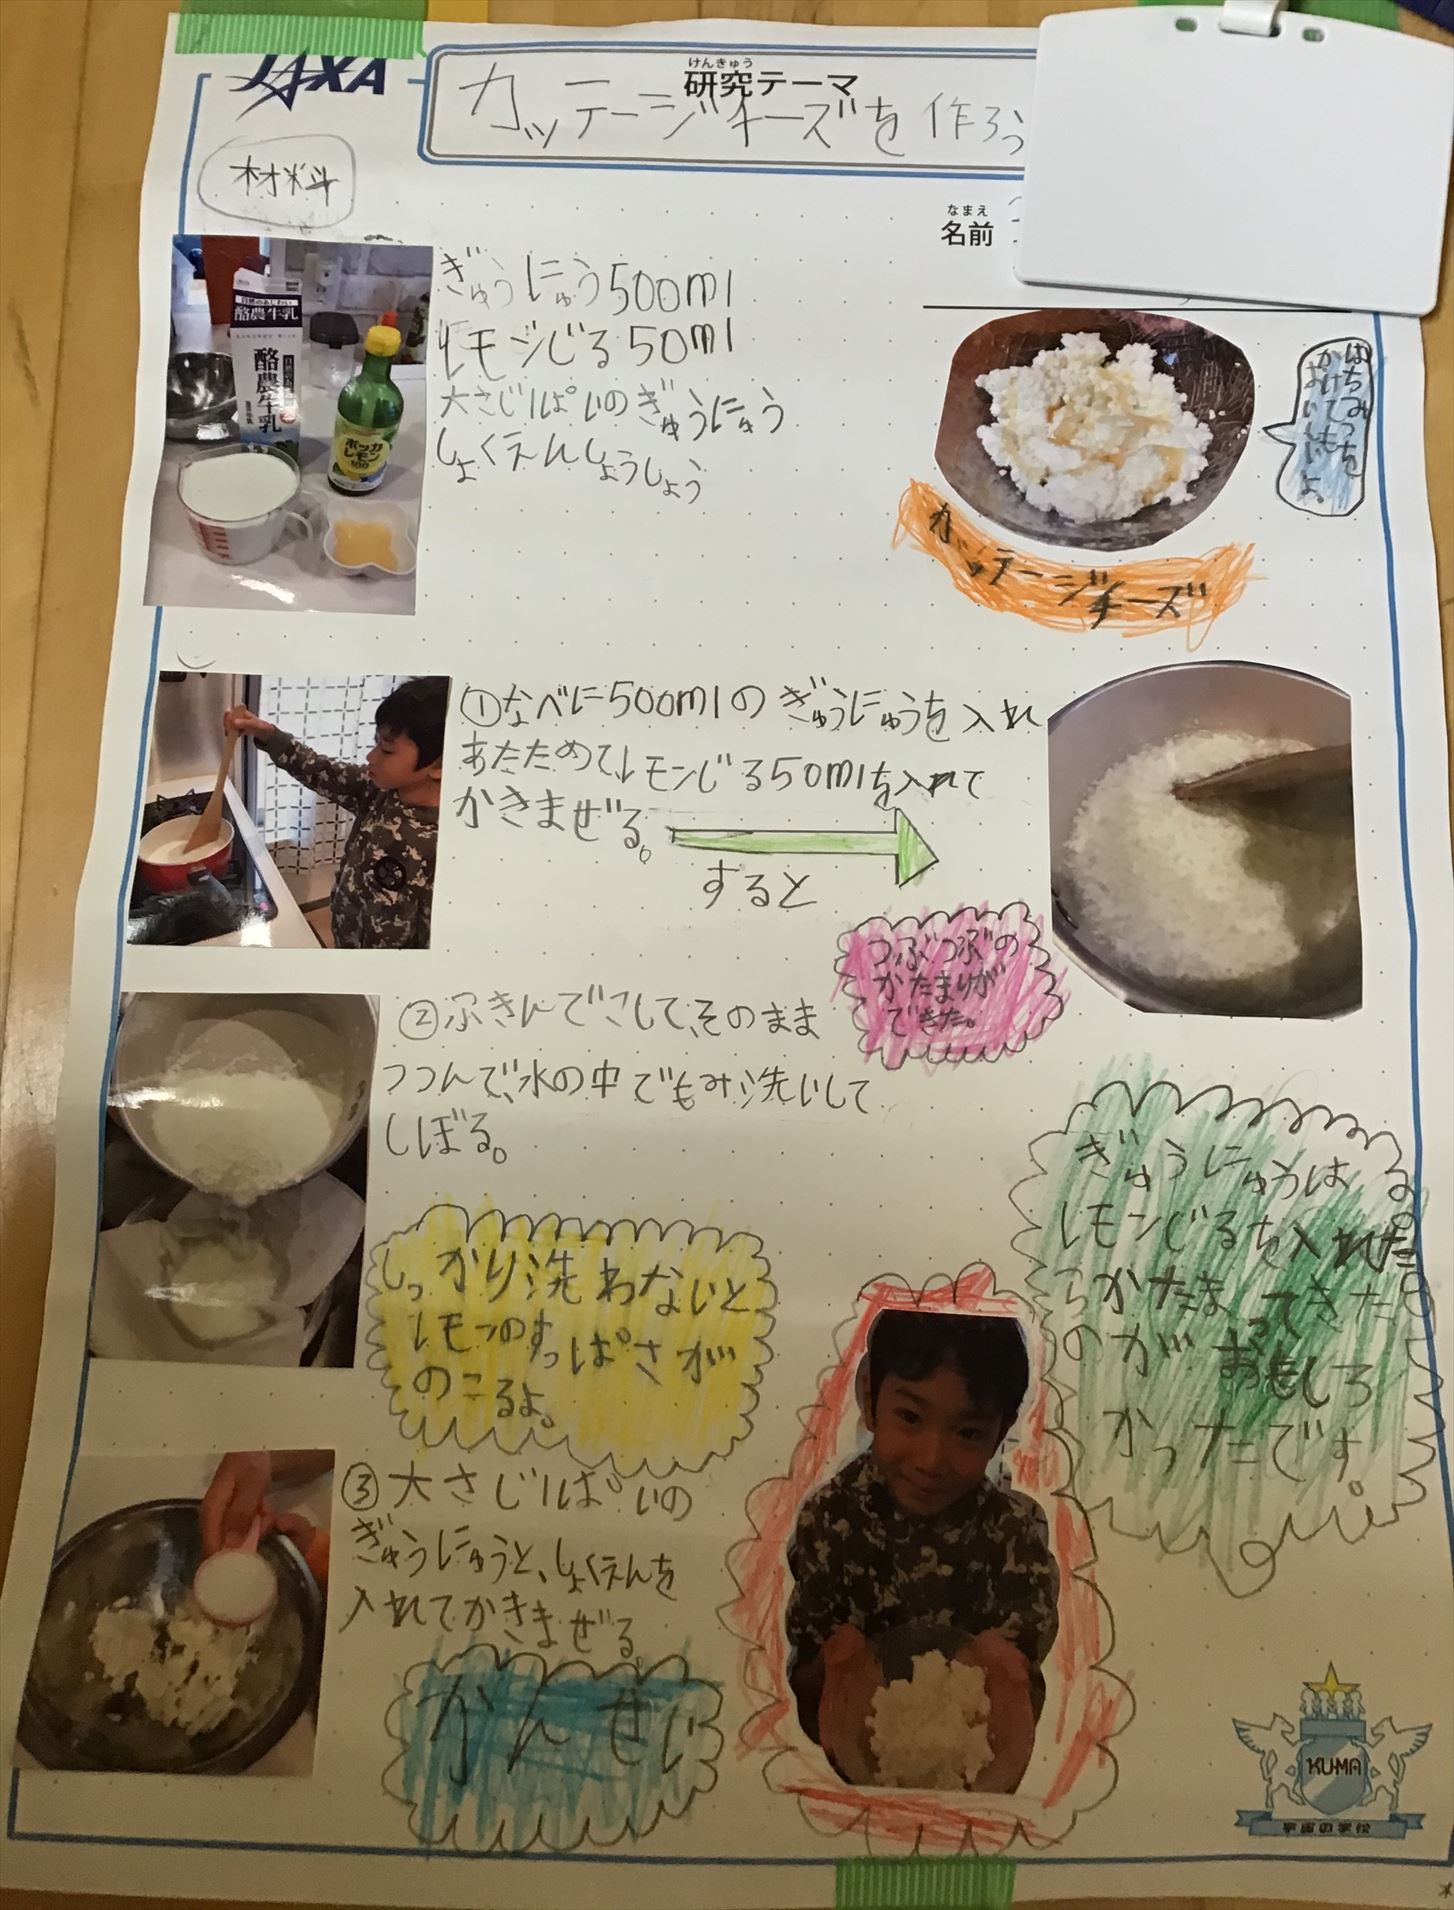 JAXA
けんきゅう
研究テーマ
カッテージチーズを作ろう
材料
なまえ
名前
ぎゅうにゅう500ml
レモンじる50ml
大さじ1ぱいのぎゅうにゅう
しょくえんしょうしょう
自然のあじわい
酪農牛乳
酪農牛乳
ポッカ
レモン
100
はちみつを
かけても
おいしいよ。
カッテージチーズ
①なべに500mlのぎゅうにゅうを入れ
あたためてレモンじる50mlを入れて
かきまぜる。
すると
つぶつぶの
かたまりが
できた。
②ふきんでこして、そのまま
つつんで、水の中でもみ洗いして
しぼる。
しっかり洗わないと
レモンのすっぱさが
のこるよ。
ぎゅうにゅうは
レモンじるを入れた
らかたまってきた
のがおもしろ
かったです。
③大さじ1ぱいの
ぎゅうにゅうと、しょくえんを
入れてかきまぜる。
かんせい
KU-MA
宇宙の学校